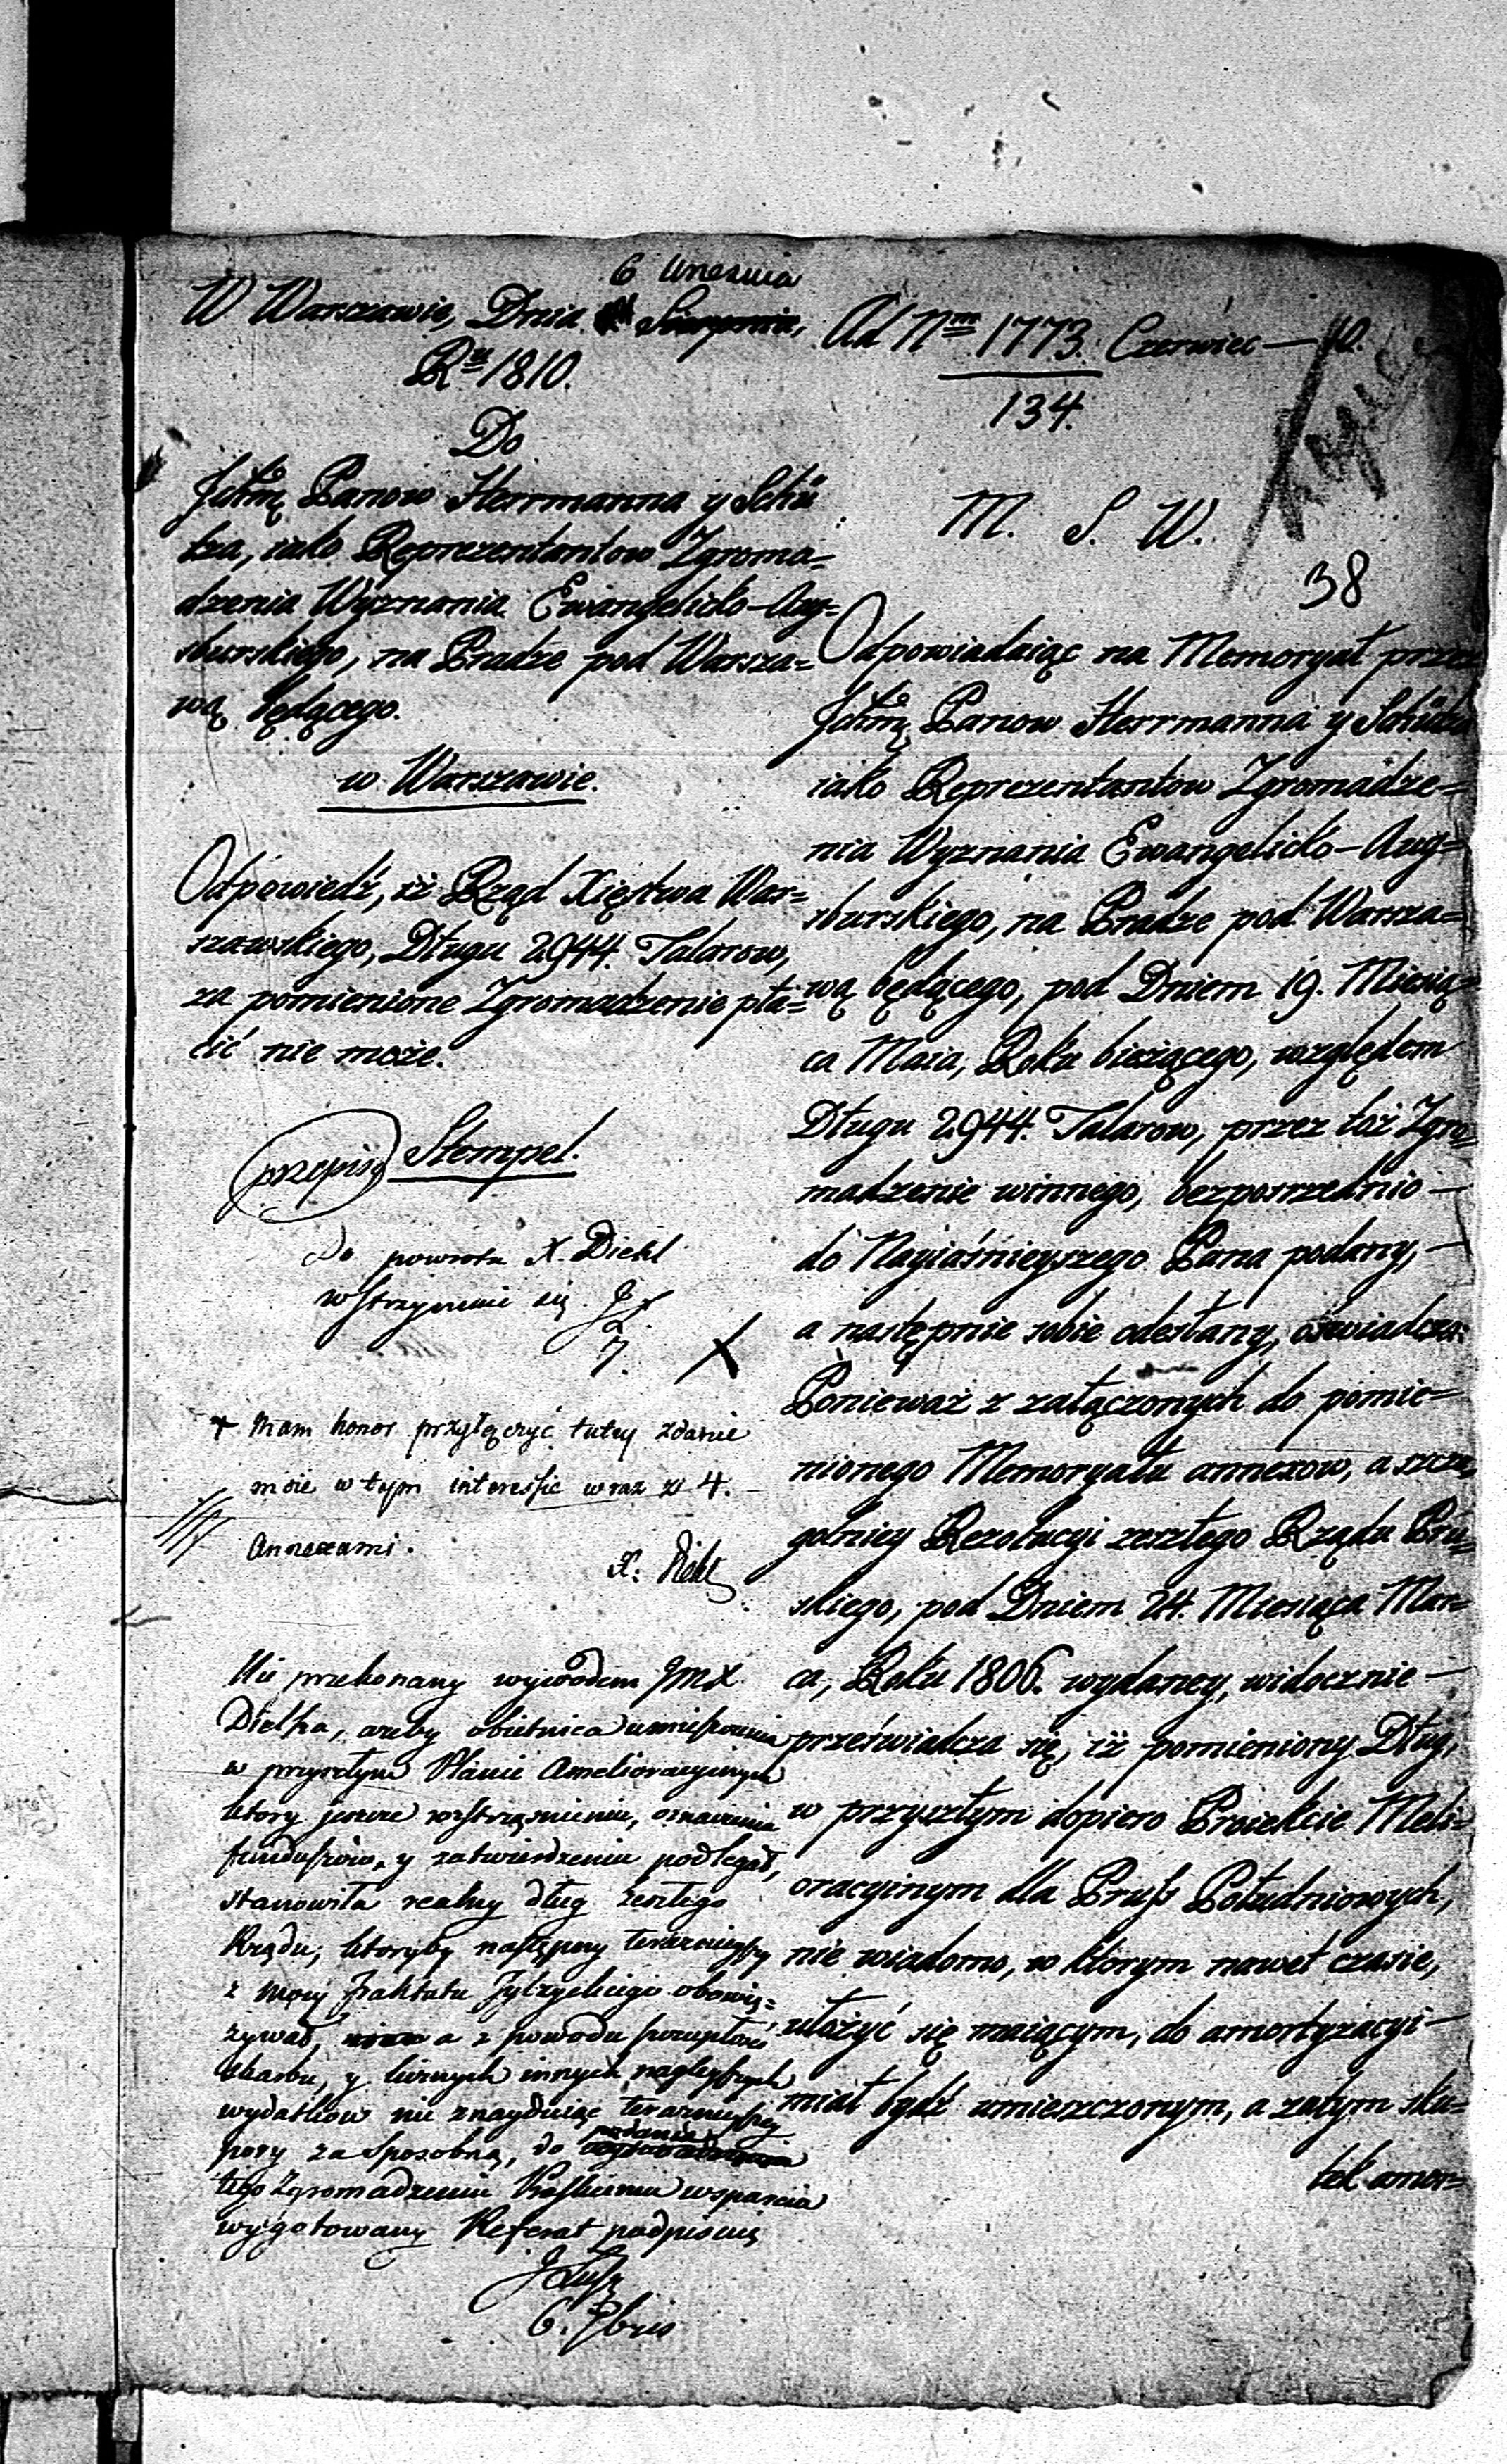 6 Wrzesnia
W Warszawie, Dnia Sierpnia,
Ru 1810.
Do
Jchmę Panow Herrmanna y Schü
tza, iako Reprezentantow Zgroma=
dzenia Wyznania Ewangelicko-Aug=
sburskiego, na Pradze pod Warsza=
wą będącego.
w Warszawie.
Odpowiedź, iż Rząd Xięstwa War=
szawskiego, Długu 2944. Talarow,
za pomienione Zgromadzenie pła=
cić nie może.
przepisg Stempel.
Do powrotu X. Diehl
wstrzymuie się.
7.
+ Mam honor przyłączyć tutey zdanie
moie w tym interessie wraz z 4.
Annexami.
X. Diehl
Nie przekonany wywodem JmX.
Diehla, ażeby obietnica umieszczenia
w przyszłym Planie Amelioracyinym
ktory jeszcze roztrząśnieniu, oznaczeniu
funduszów, y zatwierdzeniu podlegał,
stanowiła realny dług zeszłego
Rządu, ktoryby następny terażnieyszy
z mocy Traktatu Tylżyckiego obowią=
zywał, a z powodu szczupłości
skarbu, y licznych innych nagleyszych
wydatkow nie znayduiąc terażnieyszey
pory za sposobną, do podania
tego Zgromadzeniu Praskiemu wsparcia
wygotowany Referat podpisuię
6. 7bris
Ad Num 1773. Czerwiec — 10.
134.
M. S. W.
38
Odpowiadaiąc na Memoryał przez
Jchmę Panow Herrmanna y Schütza
iako Reprezentantow Zgromadze=
nia Wyznania Ewangelicko-Aug=
sburskiego, na Pradze pod Warsza=
wą będącego, pod Dniem 19. Miesią=
ca Maia, Roku bieżącego, względem
Długu 2944. Talarow, przez toż Zgro=
madzenie winnego, bezposrzednio —
do Nayiaśnieyszego Pana podany, —
a następnie sobie odesłany, oświadcza:
Ponieważ z załączonych do pomie=
nionego Memoryału annexow, a szcze=
golniey Rezolucyi zeszłego Rządu Pru=
skiego, pod Dniem 24. Miesiąca Mar=
ca, Roku 1806. wydaney, widocznie —
przeświadcza się, iż pomieniony Dług,
w przyszłym dopiero Proiekcie Meli=
oracyinym dla Pruss Południowych,
nie wiadomo, w ktorym nawet czasie,
ułożyć się maiącym, do amortyzacyi —
miał bydź umieszczonym, a zatym sku=
tek amor=